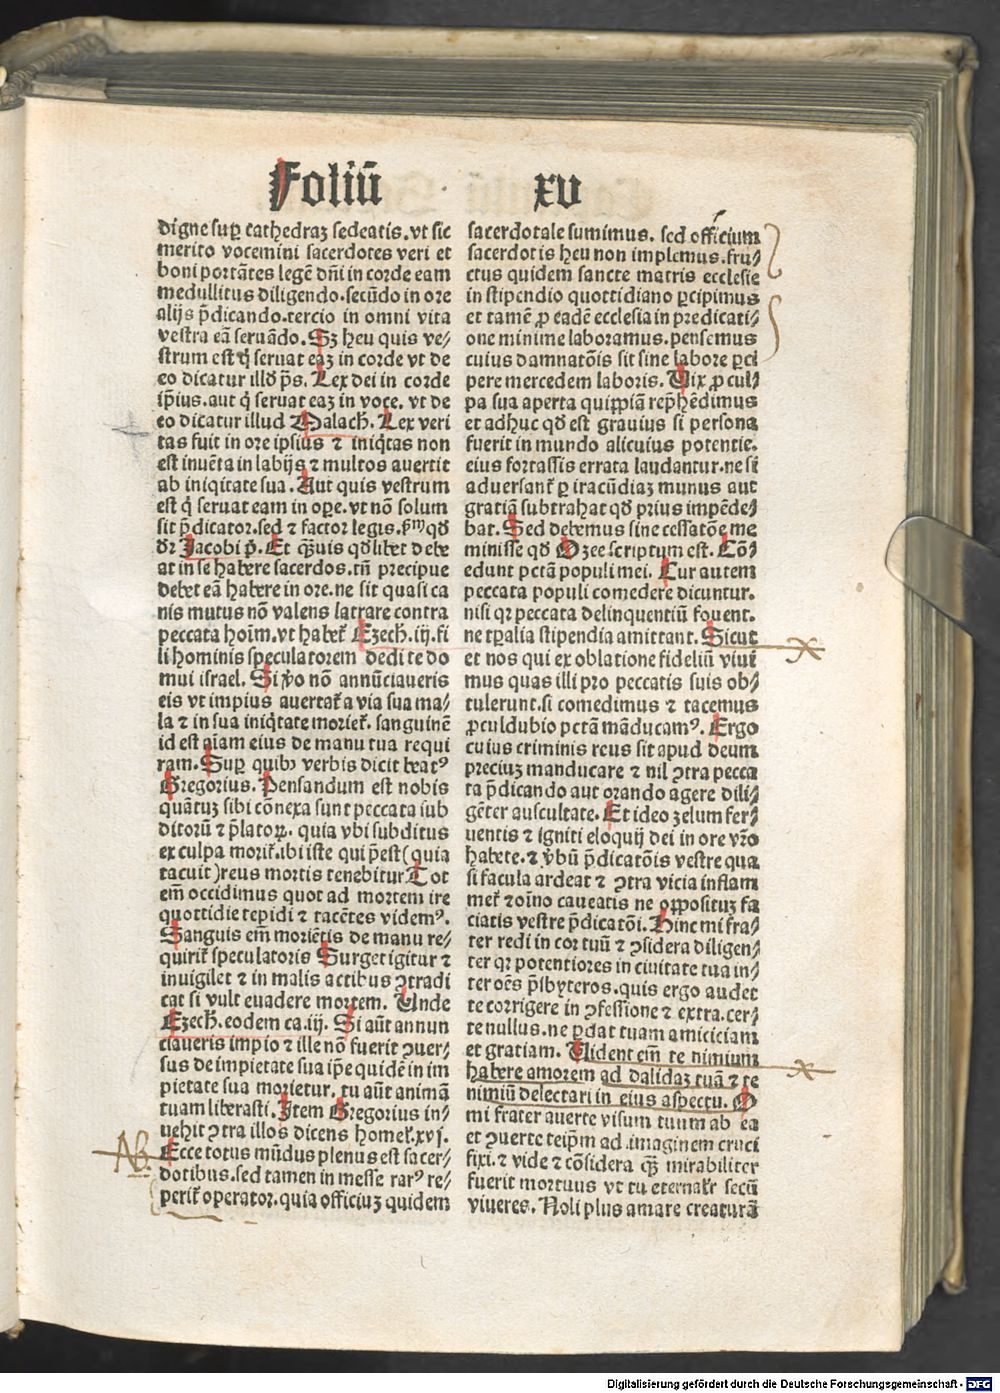 Foliū xv
digne sup̱ cathedraꝫ sedeatis. vt sic
merito vocemini sacerdotes veri et
boni portātes legē dn̄i in corde eam
medullitus diligendo. secūdo in ore
alijs p̄dicando. tercio in omni vita
vestra eā seruādo. Sꝫ heu quis ve⸗
strum est q̇ seruat eaꝫ in corde vt de
eo dicatur illđ p̄s. Lex dei in corde
ip̄ius. aut q̇ seruat eaꝫ in voce. vt de
eo dicatur illud Malach̄. Lex veri
tas fuit in ore ipsius ⁊ iniq̇tas non
est inuēta in labijs ⁊ multos auertit
ab iniqitate sua. Aut quis vestrum
est q̇ seruat eam in oꝑe. vt nō solum
sit p̄dicator. sed ⁊ factor legis. ẜm qđ
dr̄ Jacobi p̄. Et q̄̄uis qđlibet debe
at in se habere sacerdos. tn̄ precipue
debet eā habere in ore. ne sit quasi ca
nis mutus nō valens latrare contra
peccata hoīm. vt habet᷑ Ezech̄. iij. fi
li hominis speculatorem dedi te do
mui israel. Si v̊o nō annūciaueris
eis vt impius auertat᷑ a via sua ma⸗
la ⁊ in sua iniq̇tate moriet᷑. sanguinē
id est aīam eius de manu tua requi
ram. Suꝑ quibꝫ verbis dicit beatꝰ
Gregorius. Pensandum est nobis
quātuꝫ sibi cōnexa sunt peccata sub
ditorū ⁊ p̄latoꝝ. quia vbi subditus
ex culpa morit᷑. ibi iste qui p̄est (quia
tacuit) reus mortis tenebitur Tot
em̄ occidimus quot ad mortem ire
quottidie tepidi ⁊ tacētes videmꝰ.
Sanguis em̄ moriētis de manu re⸗
quirit᷑ speculatoris Surget igitur ⁊
inuigilet ⁊ in malis actibus ꝯtradi
cat si vult euadere mortem. Unde
Ezech̄. eodem ca. iij. Si aūt annun
ciaueris impio ⁊ ille nō fuerit ꝯuer⸗
sus de impietate sua ip̄e quidē in im
pietate sua morietur. tu aūt animā
tuam liberasti. Item Gregorius in⸗
uehit ꝯtra illos dicens homel̄. xvj.
NB. Ecce totus mūdus plenus est sacer⸗
dotibus. sed tamen in messe rarꝰ re⸗
perit᷑ operator. quia officiuꝫ quidem
sacerdotale sumimus. sed officium
sacerdotis heu non implemus. fru⸗
ctus quidem sancte matris ecclesie
in stipendio quottidiano ꝑcipimus
et tamē ꝓ eadē ecclesia in predicati⸗
one minime laboramus. pensemus
cuius damnatōis sit sine labore ꝑci
pere mercedem laboris. Uix ꝓ cul⸗
pa sua aperta quip̄piā rep̄hēdimus
et adhuc qđ est grauius si persona
fuerit in mundo alicuius potentie.
eius fortassis errata laudantur. ne si
aduersant᷑ ꝑ iracūdiaꝫ munus aut
gratiā subtrahat qđ prius impēde⸗
bat. Sed debemus sine cessatōe me
minisse qđ Ozee scriptum est. Cō⸗
edunt pctā populi mei. Cur autem
peccata populi comedere dicuntur.
nisi qꝛ peccata delinquentiū fouent.
ne tꝑalia stipendia amittant. Sicut
et nos qui ex oblatione fideliū viui
mus quas illi pro peccatis suis ob⸗
tulerunt. si comedimus ⁊ tacemus
ꝓculdubio pctā māducamꝰ. Ergo
cuius criminis reus sit apud deum
preciuꝫ manducare ⁊ nil ꝯtra pecca
ta p̄dicando aut orando agere dili⸗
gēter auscultate. Et ideo zelum fer⸗
uentis ⁊ igniti eloquij dei in ore vr̄o
habete. ⁊ v̊bū p̄dicatōis vestre qua
si facula ardeat ⁊ ꝯtra vicia inflam
met᷑ ⁊ oīno caueatis ne opposituꝫ fa
ciatis vestre p̄dicatōi. Hinc mi fra⸗
ter redi in cor tuū ⁊ ꝯsidera diligen⸗
ter qꝛ potentiores in ciuitate tua in⸗
ter oēs p̄sbyteros. quis ergo audet
te corrigere in ꝯfessione ⁊ extra. cer⸗
te nullus. ne ꝑdat tuam amiciciam
et gratiam. Uident em̄ te nimium
habere amorem ad dalidaꝫ tuā ⁊ te
nimiū delectari in eius aspectu. O
mi frater auerte visum tuum ab ea
et ꝯuerte teip̄m ad imaginem cruci
fixi. ⁊ vide ⁊ cōsidera q̄̄ mirabiliter
fuerit mortuus vt tu eternalr̄ secū
viueres. Noli plus amare creaturā
Digitalisierung gefördert durch die Deutsche Forschungsgemeinschaft - DFG